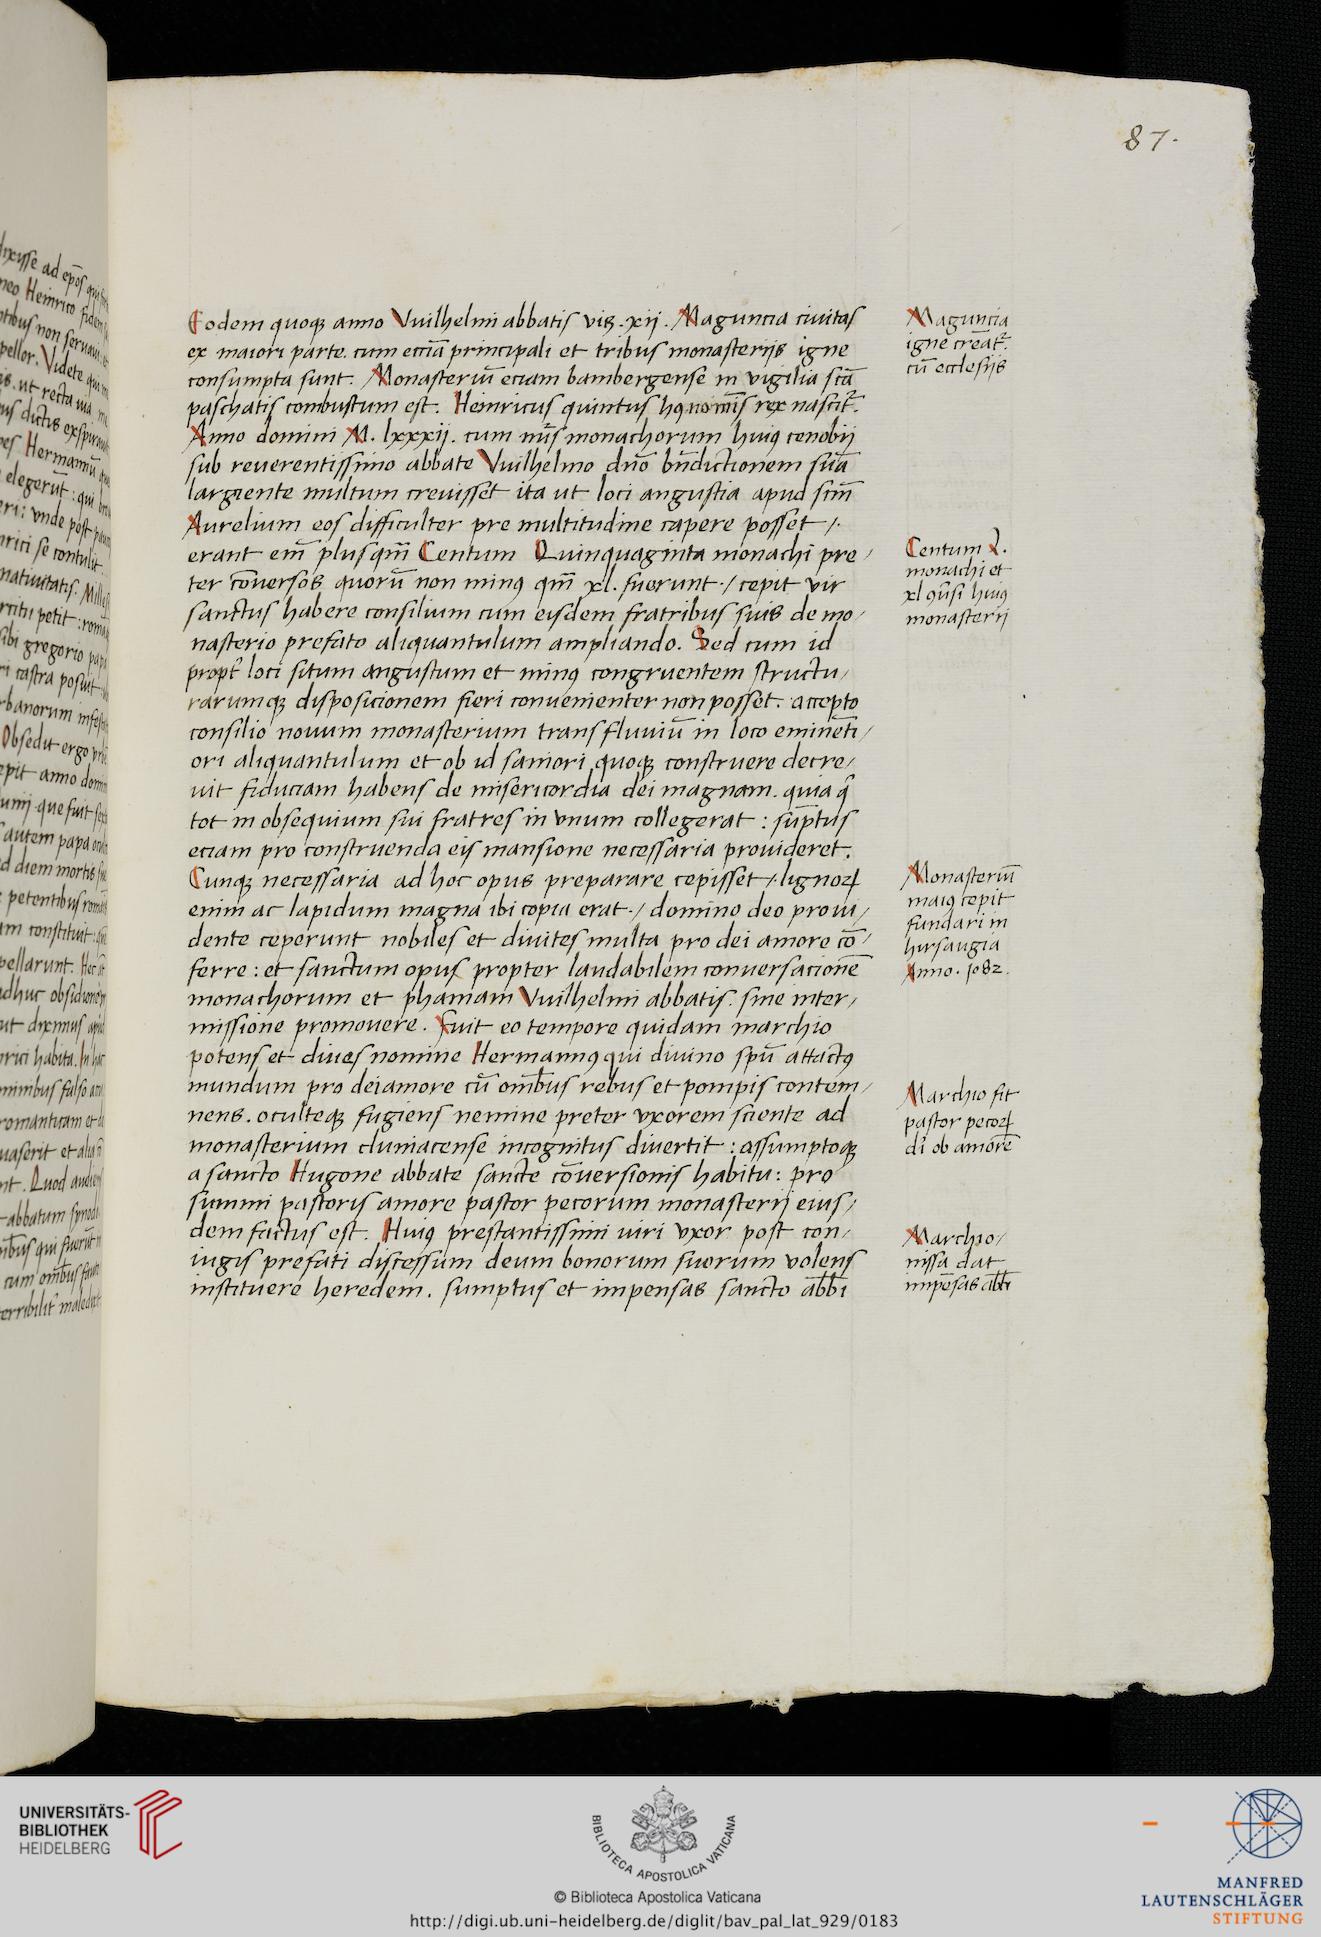 87.
Eodem quoqꝫ anno VVilhelmi abbatis viꝫ. xij. Maguncia ciuitas
ex maiori parte. cum eccīa principali et tribus monasterijs igne
consumpta sunt. Monasteriū eciam bambergense in vigilia scā
paschatis combustum est. Heinricus quintus hꝰ nomīs rex nascit᷑.
Anno domini M. lxxxij. cum nūs monachorum huiꝰ cenobij
sub reuerentissimo abbate VVilhelmo dn̄o bn̄dictionem suā
largiente multum creuisset ita ut loci angustia apud scm̄
Aurelium eos difficulter pre multitudine capere posset /.
erant em̄ plusqm̄ Centum Quinquaginta monachi pre/
ter cōuersos quorū non minꝰ qm̄ xl. fuerunt ./ cepit vir
sanctus habere consilium cum eisdem fratribus suis de mo/
nasterio prefato aliquantulum ampliando. Sed cum id
propt᷑ loci situm angustum et minꝰ congruentem structu/
rarumqꝫ disposicionem fieri conuenienter non posset. accepto
consilio nouum monasterium trans fluuiū in loco eminēti/
ori aliquantulum et ob id saniori quoqꝫ construere decre/
uit fiduciam habens de misericordia dei magnam. quia q̄
tot in obsequium sui fratres in vnum collegerat : sūptus
eciam pro construenda eis mansione necessaria prouideret.
Cunqꝫ necessaria ad hoc opus preparare cepisset /. lignoꝝ
enim ac lapidum magna ibi copia erat ./ domino deo proui/
dente ceperunt nobiles et diuites multa pro dei amore cō/
ferre : et sanctum opus propter laudabilem conuersacionē
monachorum et phamam VVilhelmi abbatis. sine inter/
missione promouere. Fuit eo tempore quidam marchio
potens et diues nomine Hermannꝰ qui diuino spū attactꝰ
mundum pro dei amore cū om̄bus rebus et pompis contem/
nens. oculteqꝫ fugiens nemine preter vxorem sciente ad
monasterium cluniacense incognitus diuertit : assumptoqꝫ
a sancto Hugone abbate sancte cōuersionis habitu : pro
summi pastoris amore pastor pecorum monasterij eius/
dem factus est. Huiꝰ prestantissimi uiri vxor post con/
iugis prefati discessum deum bonorum suorum volens
instituere heredem. sumptus et impensas sancto ab̄bi
Maguncia
igne cremāt᷑.
cū ecclesijs
Centum L.
monachi et
xl ꝯūsi huiꝰ
monasterij
Monasteriū
maiꝰ cepit
fundari in
hirsaugia
Anno. 1082.
Marchio fit
pastor pecoꝝ
dī ob amorē
Marchio/
nissa dat
impēsas ab̄bi
UNIVERSITÄTS-
BIBLIOTHEK
HEIDELBERG
BIBLIOTECA APOSTOLICA VATICANA
© Biblioteca Apostolica Vaticana
http://digi.ub.uni-heidelberg.de/diglit/bav_pal_lat_929/0183
MANFRED
LAUTENSCHLÄGER
STIFTUNG